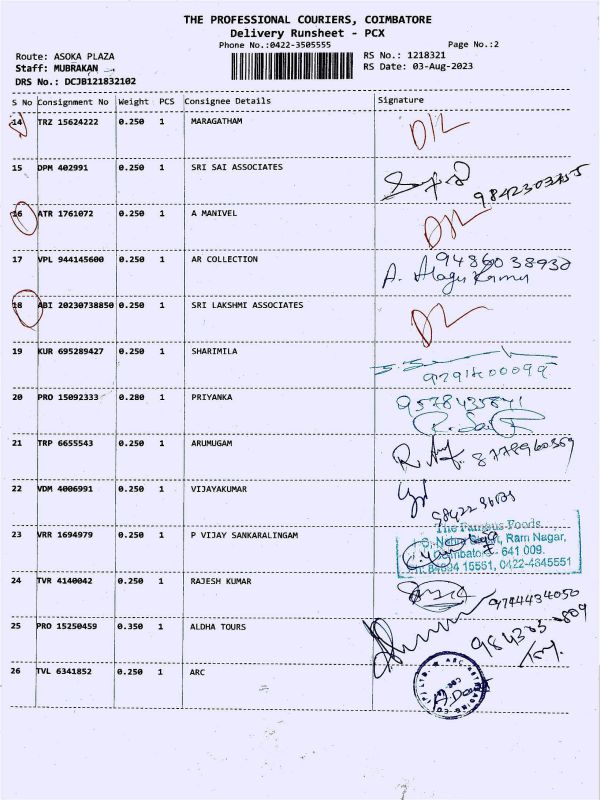 THE PROFESSIONAL COURIERS, COIMBATORE
Delivery Runsheet - PCX
Phone No.:0422-3505555
Page No.:2
Route: ASOKA PLAZA
RS No.: 1218321
Staff: MUBRAKAN
RS Date: 03-Aug-2023
DRS No.: DCJB121832102
S No Consignment No Weight PCS Consignee Details Signature
14 TRZ 15624222 0.250 1 MARAGATHAM D/L
15 DPM 402991 0.250 1 SRI SAI ASSOCIATES
16 ATR 1761072 0.250 1 A MANIVEL D/L
17 VPL 944145600 0.250 1 AR COLLECTION 9486038930
A. Alagu Kumar
18 ABI 20230738850 0.250 1 SRI LAKSHMI ASSOCIATES D/L
19 KUR 695289427 0.250 1 SHARIMILA
20 PRO 15092333 0.280 1 PRIYANKA 9578435841
21 TRP 6655543 0.250 1 ARUMUGAM 8778960359
22 VDM 4006991 0.250 1 VIJAYAKUMAR
The Famous Foods
23 VRR 1694979 0.250 1 P VIJAY SANKARALINGAM Ram Nagar,
Coimbatore - 641 009.
15561, 0422-4345551
24 TVR 4140042 0.250 1 RAJESH KUMAR
9744434050
25 PRO 15250459 0.350 1 ALDHA TOURS
26 TVL 6341852 0.250 1 ARC